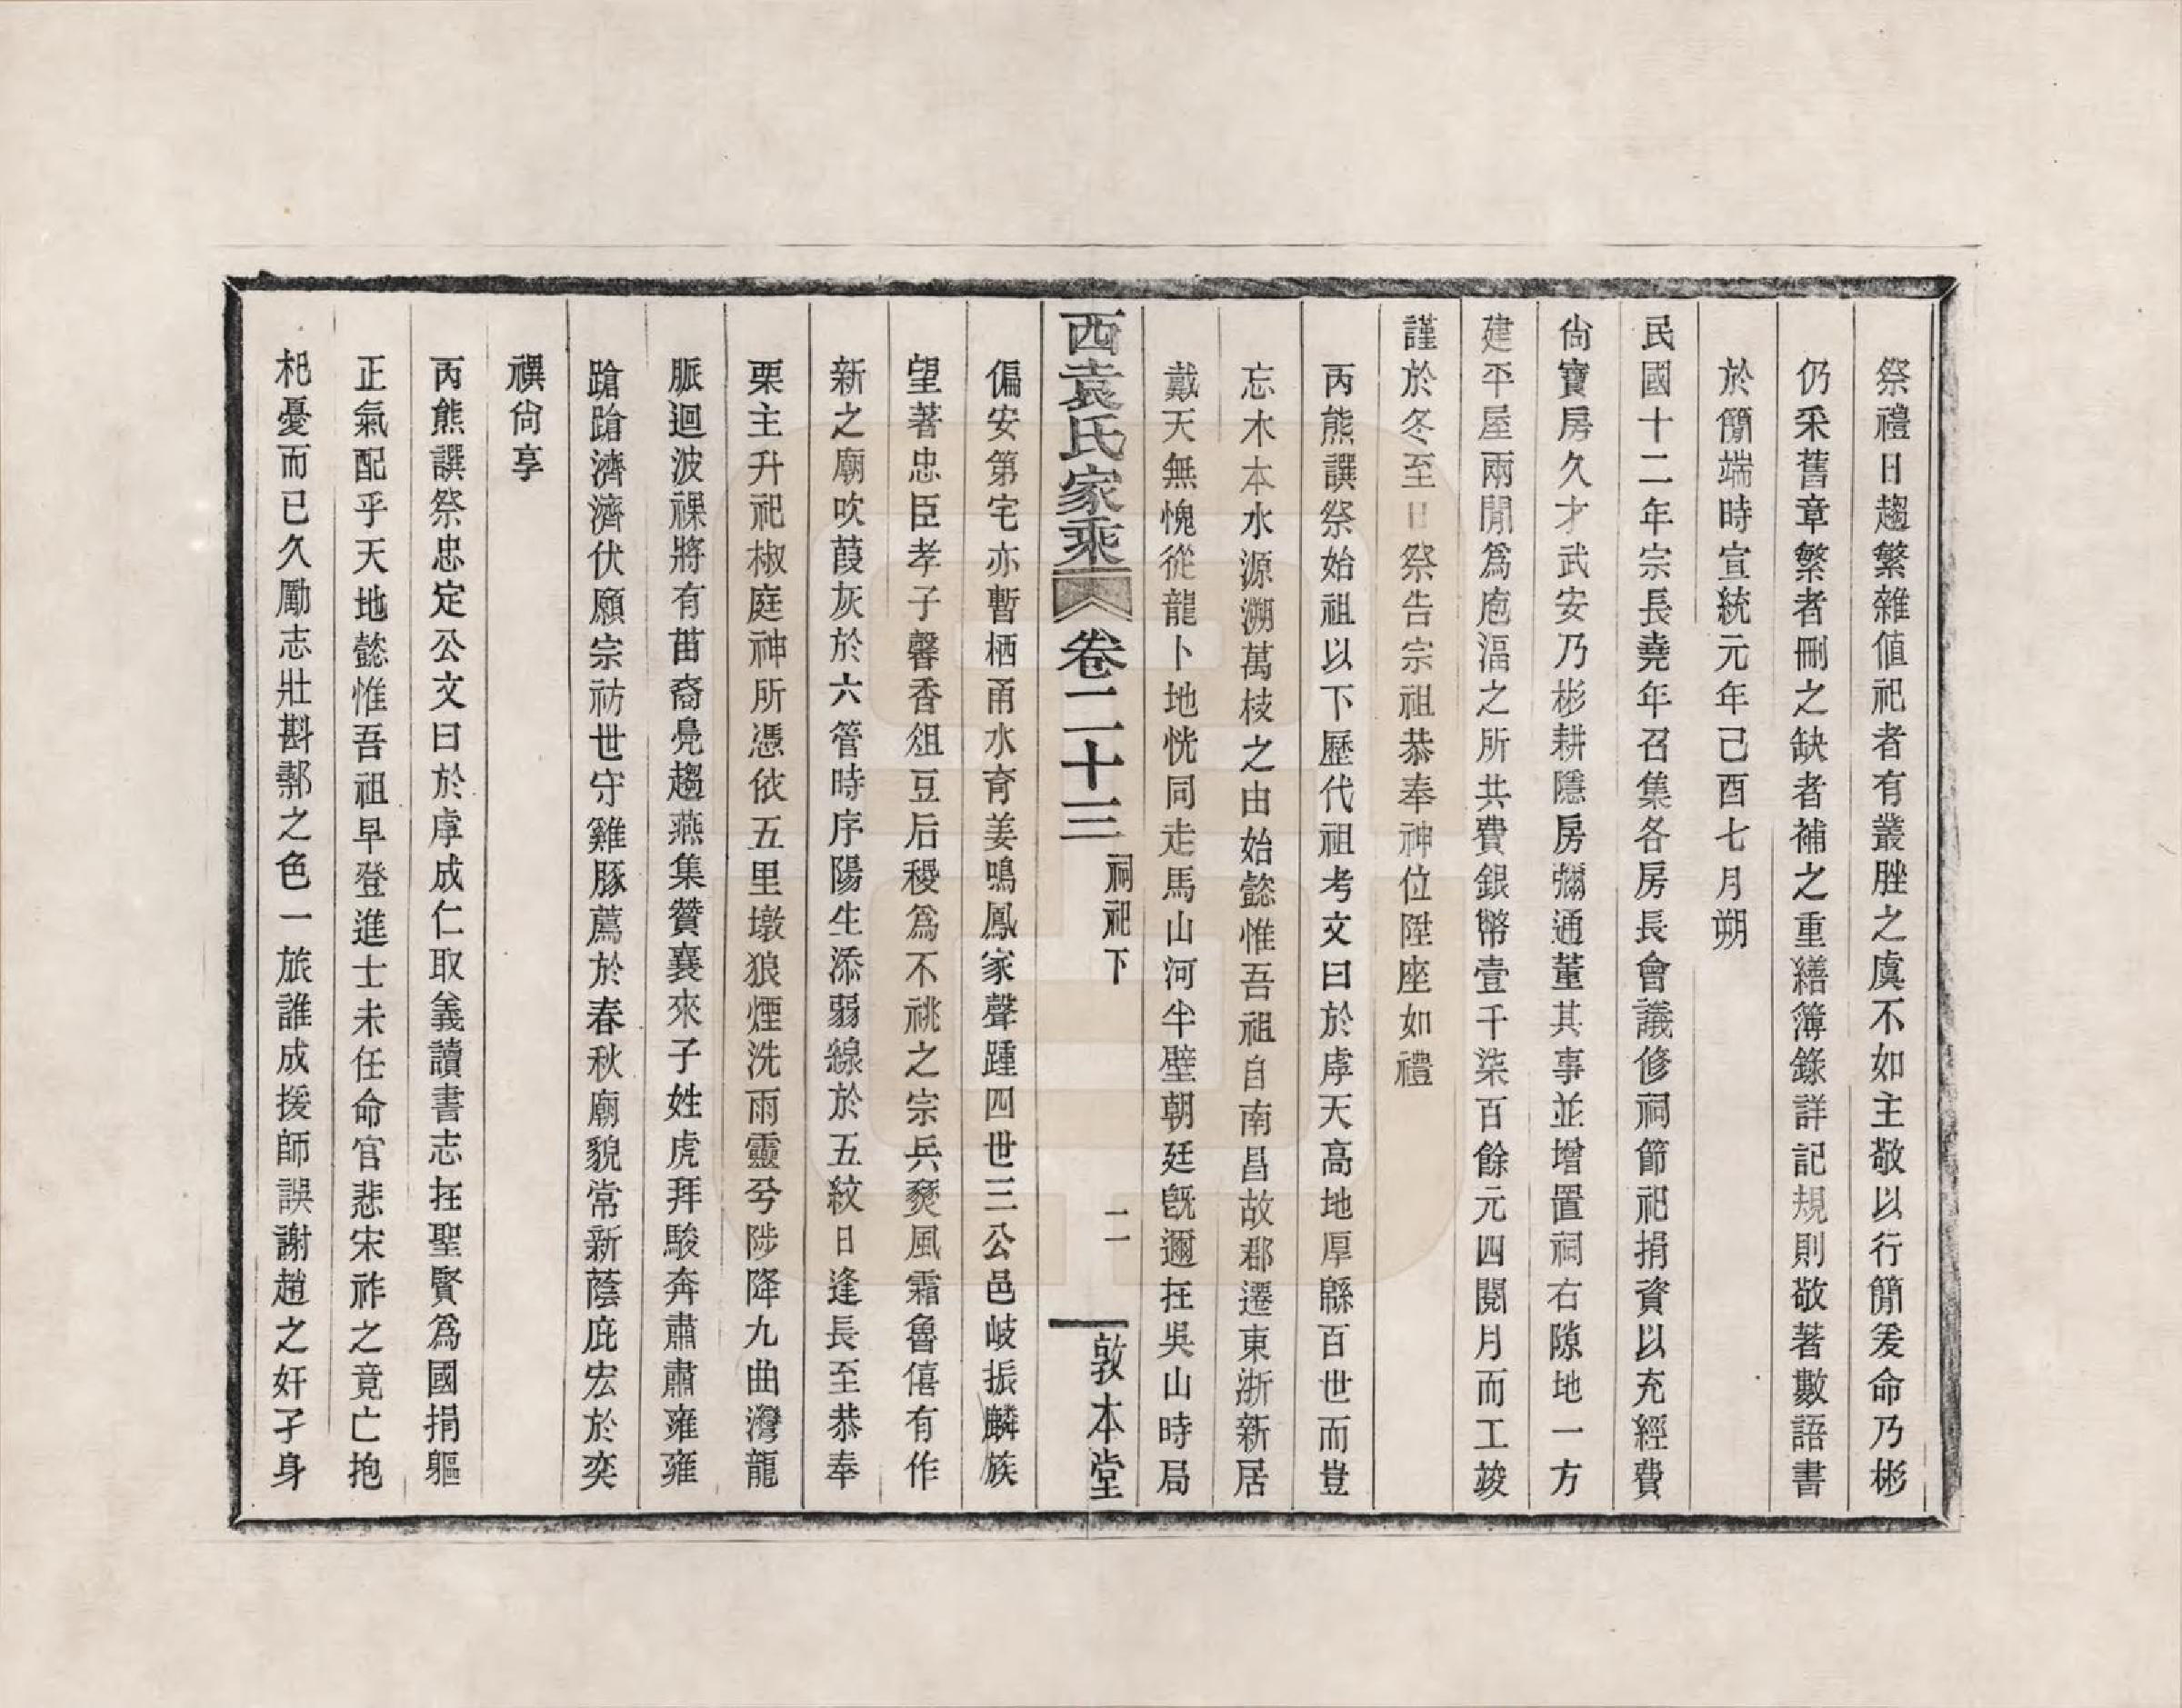 祭禮日趨繁雜値祀者有叢脞之虞不如主敬以行簡爰命乃彬
仍采舊章繁者刪之缺者補之重繕簿錄詳記規則敬著數語書
於簡端時宣統元年己酉七月朔
民國十二年宗長堯年召集各房長會議修祠節祀捐資以充經費
尙寶房久才武安乃彬耕隱房彌通董其事並增置祠右隙地一方
建平屋兩閒爲庖湢之所共費銀幣壹千柒百餘元四閱月而工竣
謹於冬至日祭告宗祖恭奉神位陞座如禮
丙熊譔祭始祖以下歷代祖考文曰於虖天高地厚緜百世而豈
忘木本水源溯萬枝之由始懿惟吾祖自南昌故郡遷東浙新居
戴天無愧從龍卜地恍同走馬山河半壁朝廷旣邇在吳山時局
西袁氏家乘 卷二十三 祠祀下 二 敦本堂
偏安第宅亦暫栖甬水育姜鳴鳳家聲踵四世三公邑岐振麟族
望著忠臣孝子馨香俎豆后稷爲不祧之宗兵燹風霜魯僖有作
新之廟吹葭灰於六管時序陽生添弱線於五紋日逢長至恭奉
栗主升祀椒庭神所憑依五里墩狼煙洗雨靈兮陟降九曲灣龍
脈迴波祼將有苗裔鳧趨燕集贊襄來子姓虎拜駿奔肅肅雍雍
蹌蹌濟濟伏願宗祊世守雞豚薦於春秋廟貌常新蔭庇宏於奕
禩尙享
丙熊譔祭忠定公文曰於虖成仁取義讀書志在聖賢爲國捐軀
正氣配乎天地懿惟吾祖早登進士未任命官悲宋祚之竟亡抱
杞憂而已久勵志壯斟鄩之色一旅誰成援師誤謝趙之奸孑身